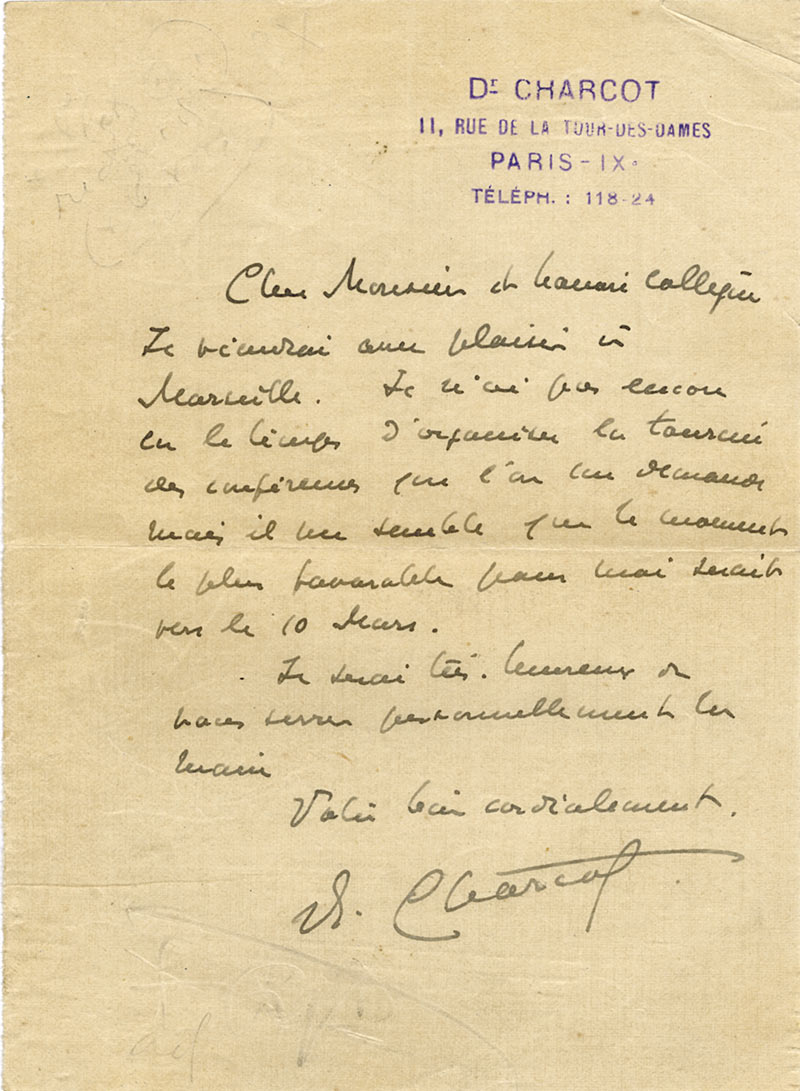 Dr CHARCOT
11, RUE DE LA TOUR-DES-DAMES
PARIS-IXe
TÉLÉPH. : 118-24
Cher Monsieur et honoré collègue
Je viendrai avec plaisir à
Marseille. Je n'ai pas encore
eu le temps d'organiser la tournée
des conférences que l'on me demande
mais il me semble que le moment
le plus favorable pour moi serait
vers le 10 Mars.
Je serai très heureux de
vous serrer personnellement la
main
Votre bien cordialement.
Charcot